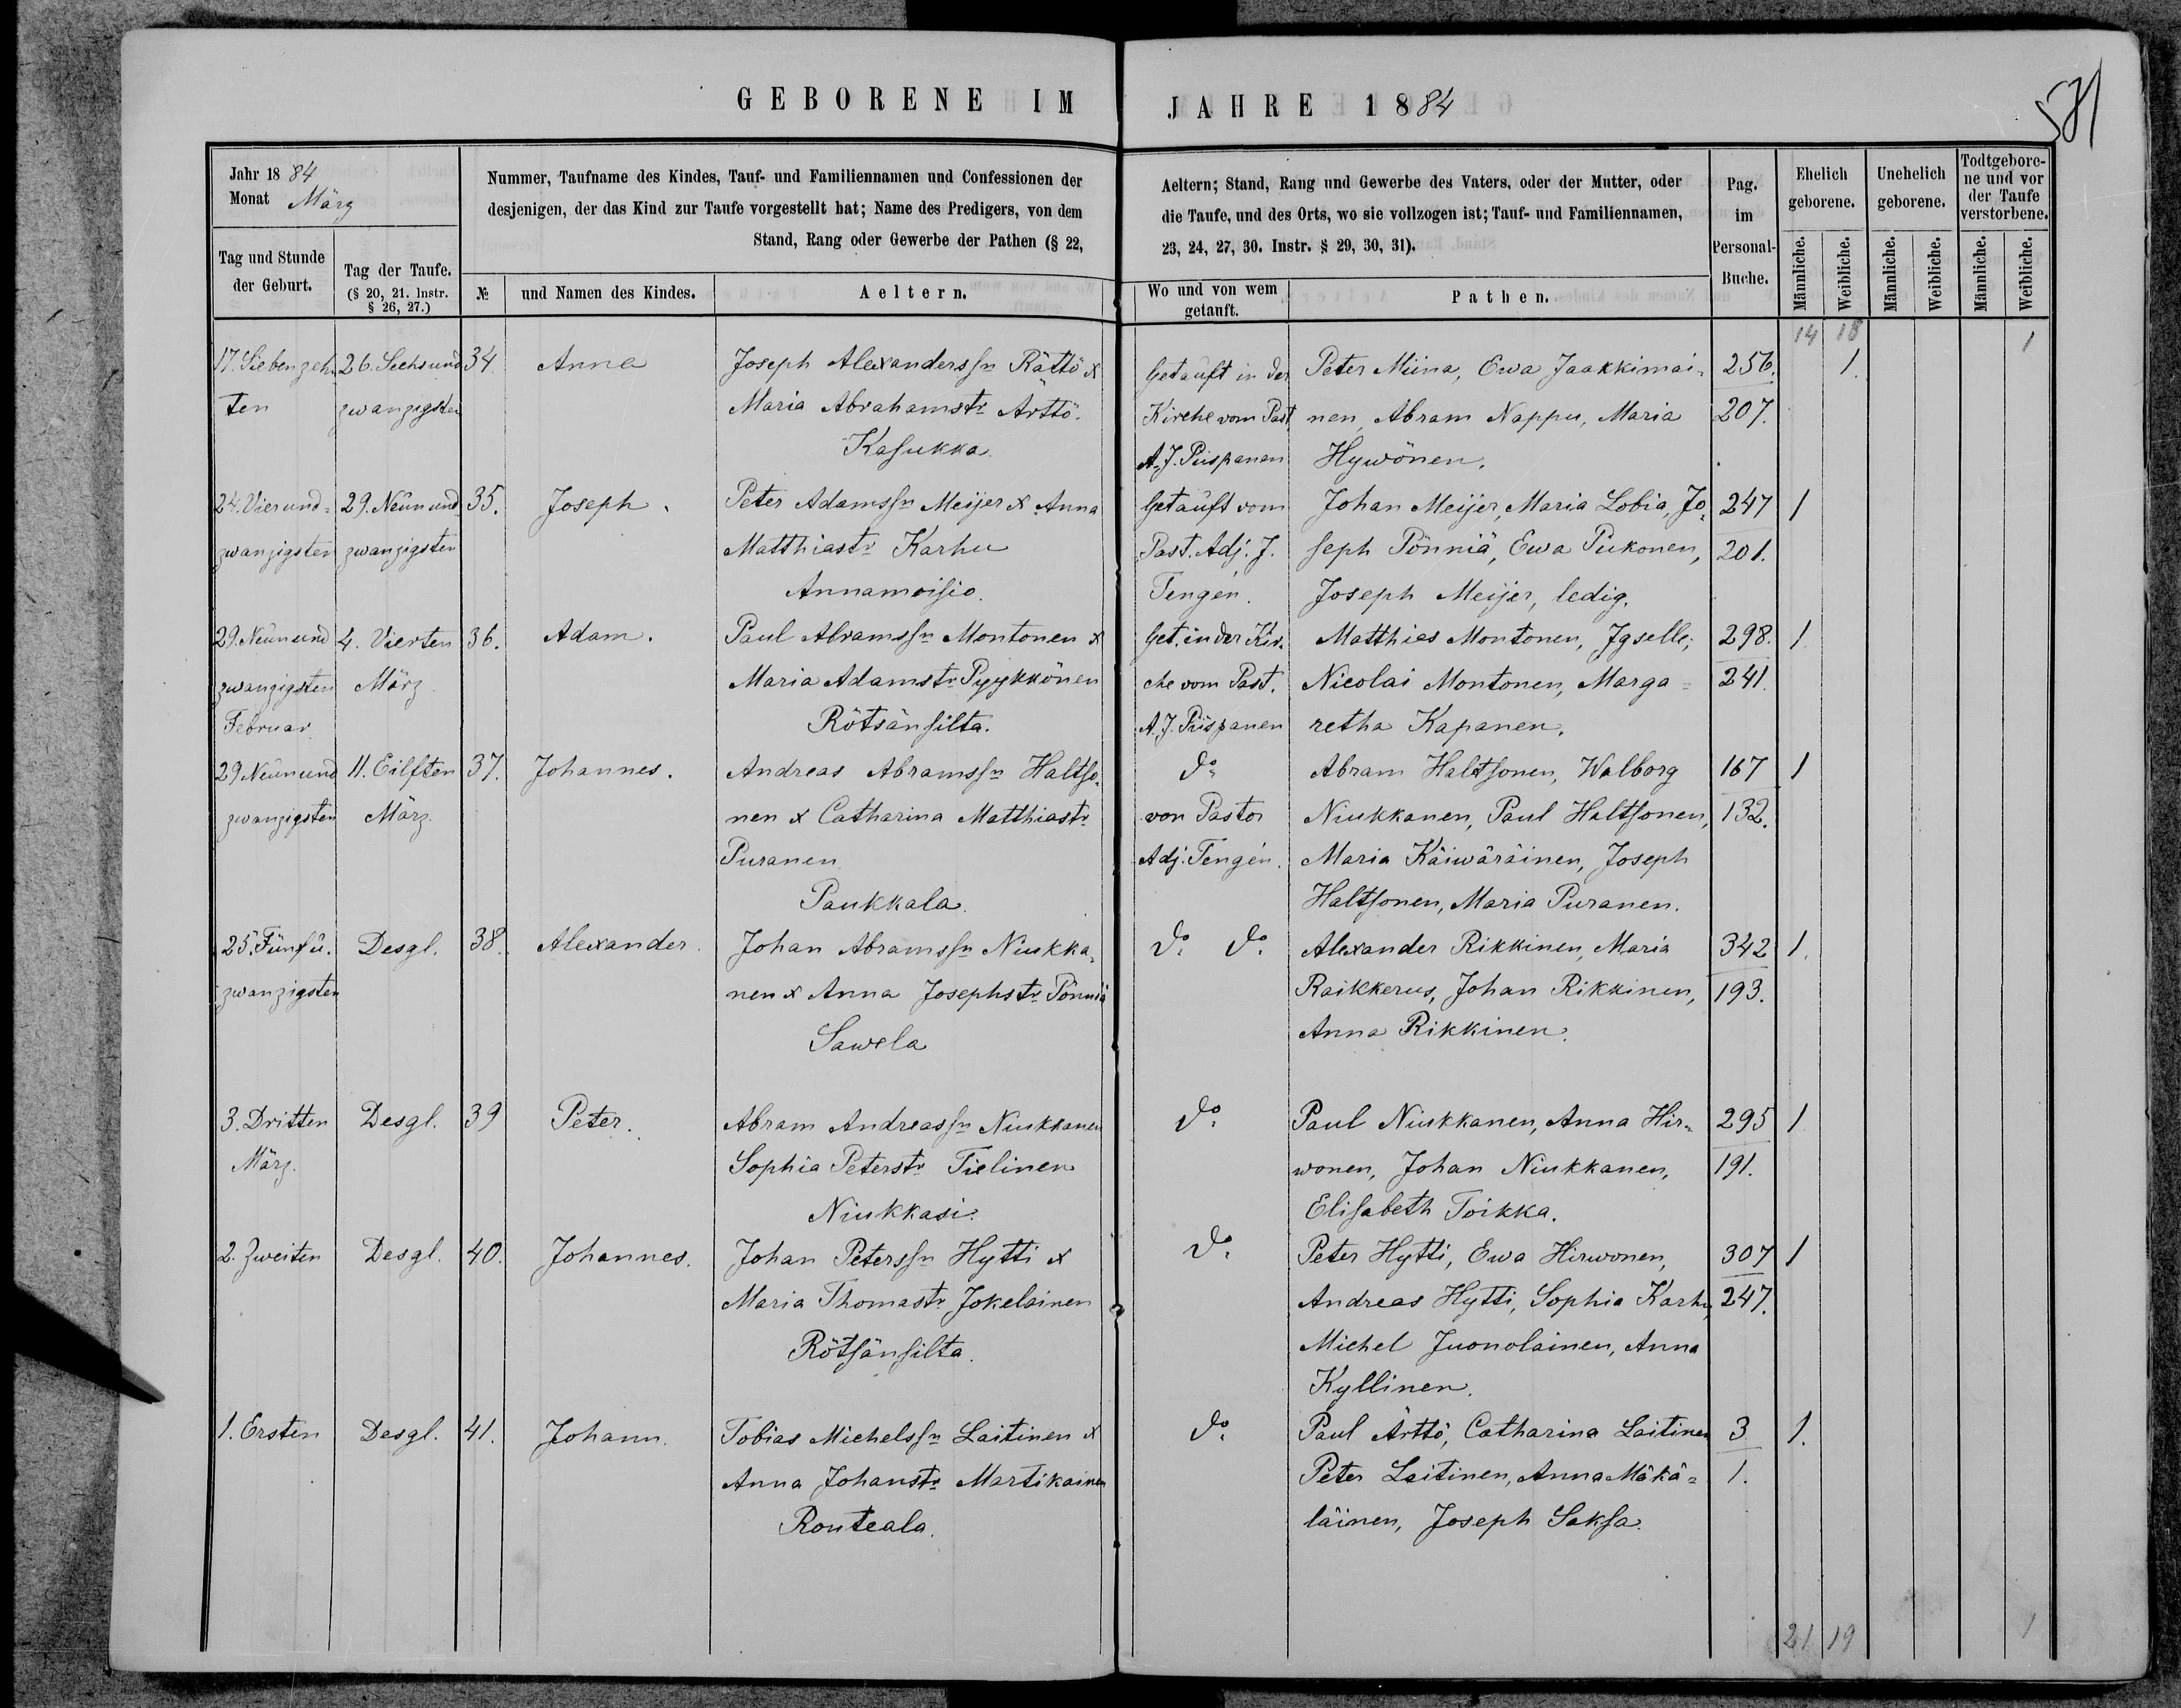 GEBORENE IM JAHRE 1884
581
Jahr 1884
Monat März
Nummer, Taufname des Kindes, Tauf- und Familiennamen und Confessionen der
desjenigen, der das Kind zur Taufe vorgestellt hat; Name des Predigers, von dem
Stand, Rang oder Gewerbe der Pathen (§ 22,
Aeltern; Stand, Rang und Gewerbe des Vaters, oder der Mutter, oder
die Taufe, und des Orts, wo sie vollzogen ist; Tauf- und Familiennamen,
23, 24, 27, 30. Instr. § 29, 30, 31).
Tag und Stunde
der Geburt.
Tag der Taufe.
(§ 20, 21. Instr.
§ 26, 27.)
№
und Namen des Kindes.
Aeltern.
Wo und von wem
getauft.
Pathen.
Pag.
im
Personal-
Buche.
Ehelich
geborene.
Unehelich
geborene.
Todtgebore-
ne und vor
der Taufe
verstorbene.
Männliche.
Weibliche.
Männliche.
Weibliche.
Männliche.
Weibliche.
14 18 1
17. Siebenzehn 26. Sechsund 34. Anna Joseph Alexandersſn Rättö x Getauft in der Peter Miina, Ewa Jaakkimai- 256. 1.
ten zwanzigsten Maria Abrahamstr Ärttö. Kirche vom Past nen, Abram Nappu, Maria 207.
Kaſukka A. J. Piispanen Hywönen.
24. Vierund- 29. Neunund 35. Joseph. Peter Adamsſn Meijer x Anna Getauft vom Johan Meijer, Maria Lobia, Jo- 247 1
zwanzigsten zwanzigsten Matthiastr Karhu Past. Adj. J. ſeph Pönniä, Ewa Pukonen, 201.
Annamoiſio. Tengén. Joseph Meijer, ledig.
29. Neunund 4. Vierten 36. Adam. Paul Abramsſn Montonen x Get. in der Kir- Matthias Montonen, Jgselle, 298. 1
zwanzigsten März Maria Adamstr Pyykkönen che vom Past. Nicolai Montonen, Marga- 241.
Februar. Rötsänſilta. A. J. Piispanen retha Kapanen.
29 Neunund 11. Eilften 37. Johannes. Andreas Abramsſn Haltſo- do Abram Haltſonen, Walborg 167 1
zwanzigsten März. nen x Catharina Matthiastr von Pastor Niukkanen, Paul Haltſonen, 132.
Puranen Adj. Tengén. Maria Käiwäräinen, Joseph
Paukkala. Haltſonen, Maria Puranen.
25. Fünf u. Desgl. 38. Alexander. Johan Abramsſn Niukka- do do Alexander Rikkinen, Maria 342 1.
zwanzigsten nen x Anna Josephstr Pönniä Raikkerus, Johan Rikkinen, 193.
Sawela Anna Rikkinen.
3. Dritten Desgl. 39 Peter. Abram Andreasſn Niukkanen do Paul Niukkanen, Anna Hir- 295 1
März. Sophia Peterstr Tielinen wonen, Johan Niukkanen, 191.
Niukkasi. Eliſabeth Toikka.
2. Zweiten Desgl. 40. Johannes. Johan Petersſn Hytti x do Peter Hytti, Ewa Hirwonen, 307 1
Maria Thomastr Jokelainen Andreas Hytti, Sophia Karhu, 247.
Rötſänſilta. Michel Juonolainen, Anna
Kyllinen.
1. Ersten Desgl. 41. Johann. Tobias Michelsſn Laitinen x do Paul Ärttö, Catharina Laitinen 3 1.
Anna Johanstr Martikainen Peter Laitinen, Anna Mäkä- 1.
Routeala. läinen, Joseph Sakſa.
21 19 1